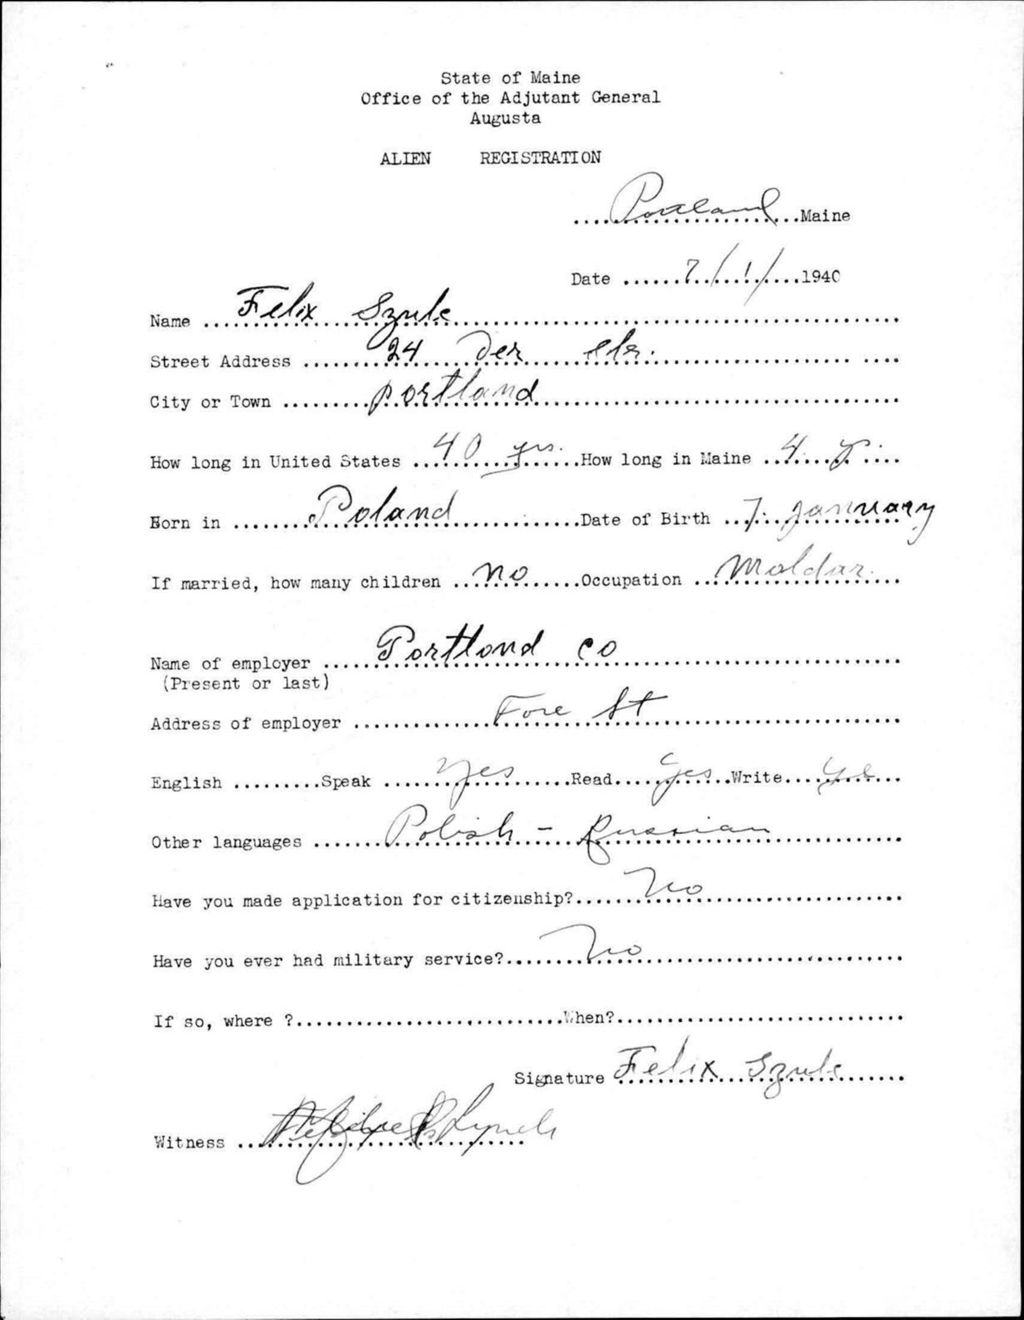 State of Maine
Office of the Adjutant General
Augusta
ALIEN REGISTRATION
Portland Maine
Date 7/1/ 1940
Name Felix Szulc
Street Address 24 Dex Str.
City or Town Portland
How long in United States 40 yrs. How long in Maine 4 y.
Born in Poland Date of Birth 7. January
If married, how many children No Occupation Moldar.
Name of employer Portlond co
(Present or last)
Address of employer Fore St
English Speak Yes Read Yes Write Yes
Other languages Polish - Russian
Have you made application for citizenship? No
Have you ever had military service? No
If so, where ? When?
Signature Felix Szulc
Witness Lynch